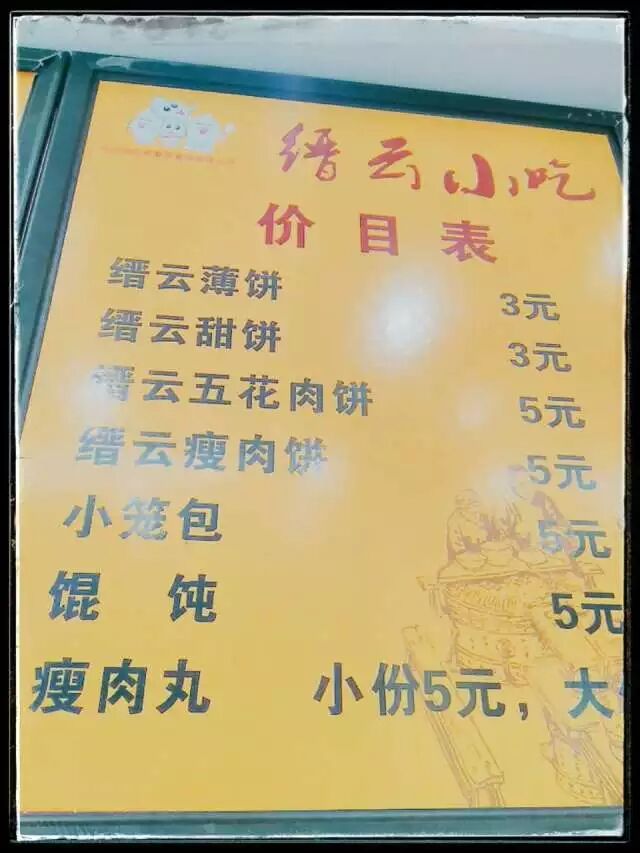 缙云小吃
价目表
缙云薄饼 3元
缙云甜饼 3元
缙云五花肉饼 5元
缙云瘦肉饼 5元
小笼包 5元
馄饨 5元
瘦肉丸 小份5元，大